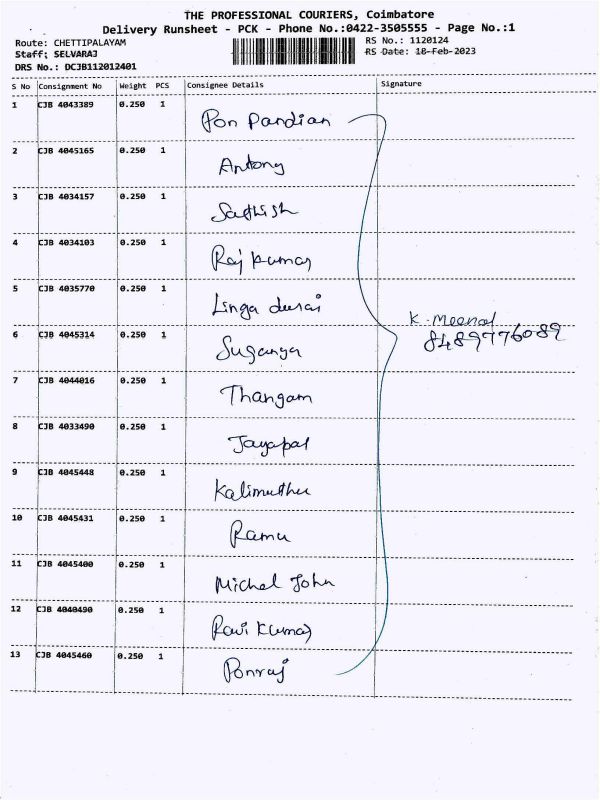 THE PROFESSIONAL COURIERS, Coimbatore
Delivery Runsheet - PCK - Phone No.:0422-3505555 - Page No.:1
Route: CHETTIPALAYAM
Staff; SELVARAJ
DRS No.: DCJB112012401
RS No.: 1120124
RS Date: 18-Feb-2023
S No Consignment No Weight PCS Consignee Details Signature
1 CJB 4043389 0.250 1 Pon Pandian
2 CJB 4045165 0.250 1 Antony
3 CJB 4034157 0.250 1 Sathish
4 CJB 4034103 0.250 1 Raj Kumar
5 CJB 4035770 0.250 1 Linga durai
K. Meenal
8489776089
6 CJB 4045314 0.250 1 Suganya
7 CJB 4044016 0.250 1 Thangam
8 CJB 4033490 0.250 1 Jayapal
9 CJB 4045448 0.250 1 Kalimuthu
10 CJB 4045431 0.250 1 Ramu
11 CJB 4045400 0.250 1 Michel John
12 CJB 4040490 0.250 1 Ravi Kumar
13 CJB 4045460 0.250 1 Ponraj